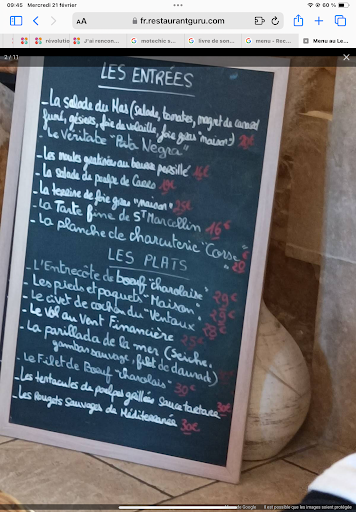 09:45 Mercredi 21 février
60 %
AA
fr.restaurantguru.com
révolutio
J'ai rencon...
motechic s...
livre de son...
menu - Rec...
Menu au Le...
2 / 11
LES ENTRÉES
- La salade du Mas (salade, tomates, magret de canard
fumé, gésiers, foie de volaille, foie gras "maison")
- Le Véritable "Pata Negra"
- Les moules gratinées au beurre persillé
- La salade de poulpe de
- La terrine de foie gras "maison" 25€
- La Tarte fine de St Marcellin 16€
- La planche de charcuterie "Corse"
LES PLATS
- L'Entrecôte de boeuf "charolaise" 29€
- Les pieds et paquets "Maison"
- Le civet de cochon du "Ventoux"
- Le Vol au Vent Financière 25€
- La parillada de la mer (Seiche,
gambas sauvage, filet de daurad)
- Le Filet de Boeuf "charolais" 30€
- Les tentacules de poulpes grillées sauce tartare 30€
- Les Rougets Sauvages de Méditerranée 30€
Google Il est possible que les images soient protégées